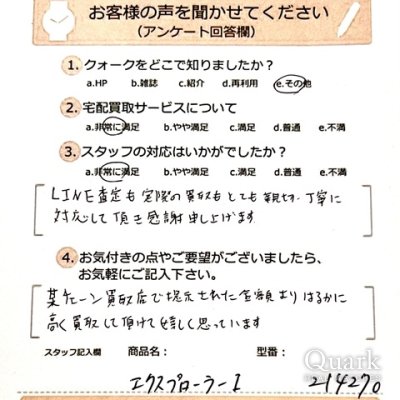 お客様の声を聞かせてください
(アンケート回答欄)
1. クォークをどこで知りましたか?
a.HP b.雑誌 c.紹介 d.再利用 e.その他
2. 宅配買取サービスについて
a.非常に満足 b.やや満足 c.満足 d.普通 e.不満
3. スタッフの対応はいかがでしたか?
a.非常に満足 b.やや満足 c.満足 d.普通 e.不満
LINE査定も実際の買取もとても親切、丁寧に
対応して頂き感謝申し上げます
4. お気付きの点やご要望がございましたら、
お気軽にご記入下さい。
某チェーン買取店で提示された金額よりはるかに
高く買取して頂けて嬉しく思っています
スタッフ記入欄 商品名: 型番:
エクスプローラーI 214270
Quark